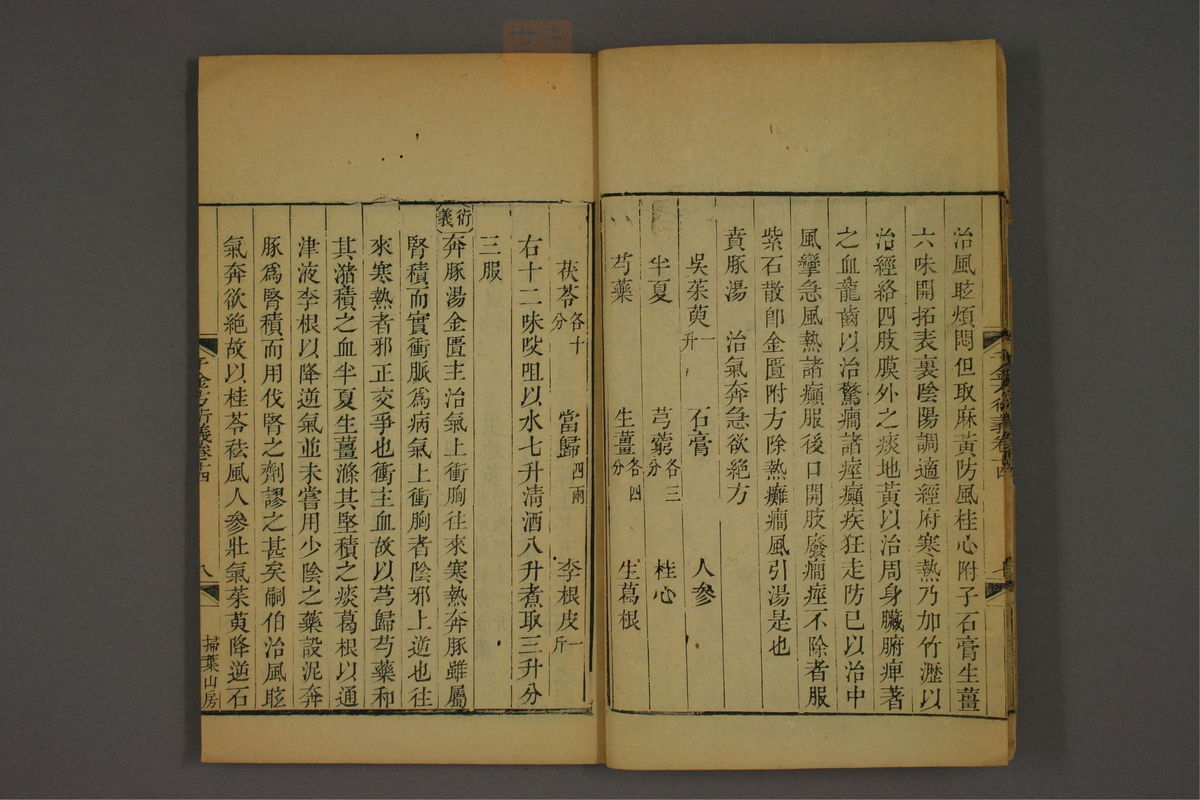 治風眩煩悶但取麻黃防風桂心附子石膏生薑
六味開拓表裏陰陽調適經府寒熱乃加竹瀝以
治經絡四肢膜外之痰地黃以治周身臟腑痺著
之血龍齒以治驚癎諸痙癲疾狂走防己以治中
風攣急風熱諸癲服後口開肢廢癎痙不除者服
紫石散卽金匱附方除熱癱癎風引湯是也
賁豚湯　治氣奔急欲絶方
吳茱萸一升　石膏　人參
半夏　芎藭各三分　桂心
芍藥　生薑各四分　生葛根
茯苓各十分　當歸四兩　李根皮一斤
右十二味㕮咀以水七升清酒八升煮取三升分
三服
衍義
奔豚湯金匱主治氣上衝胸往來寒熱奔豚雖屬
腎積而實衝脈爲病氣上衝胸者陰邪上逆也往
來寒熱者邪正交爭也衝主血故以芎歸芍藥和
其瀦積之血半夏生薑滌其堅積之痰葛根以通
津液李根以降逆氣並未嘗用少陰之藥設泥奔
豚爲腎積而用伐腎之劑謬之甚矣嗣伯治風眩
氣奔欲絶故以桂苓祛風人參壯氣茱萸降逆石
千金方衍義卷十四
八
掃葉山房